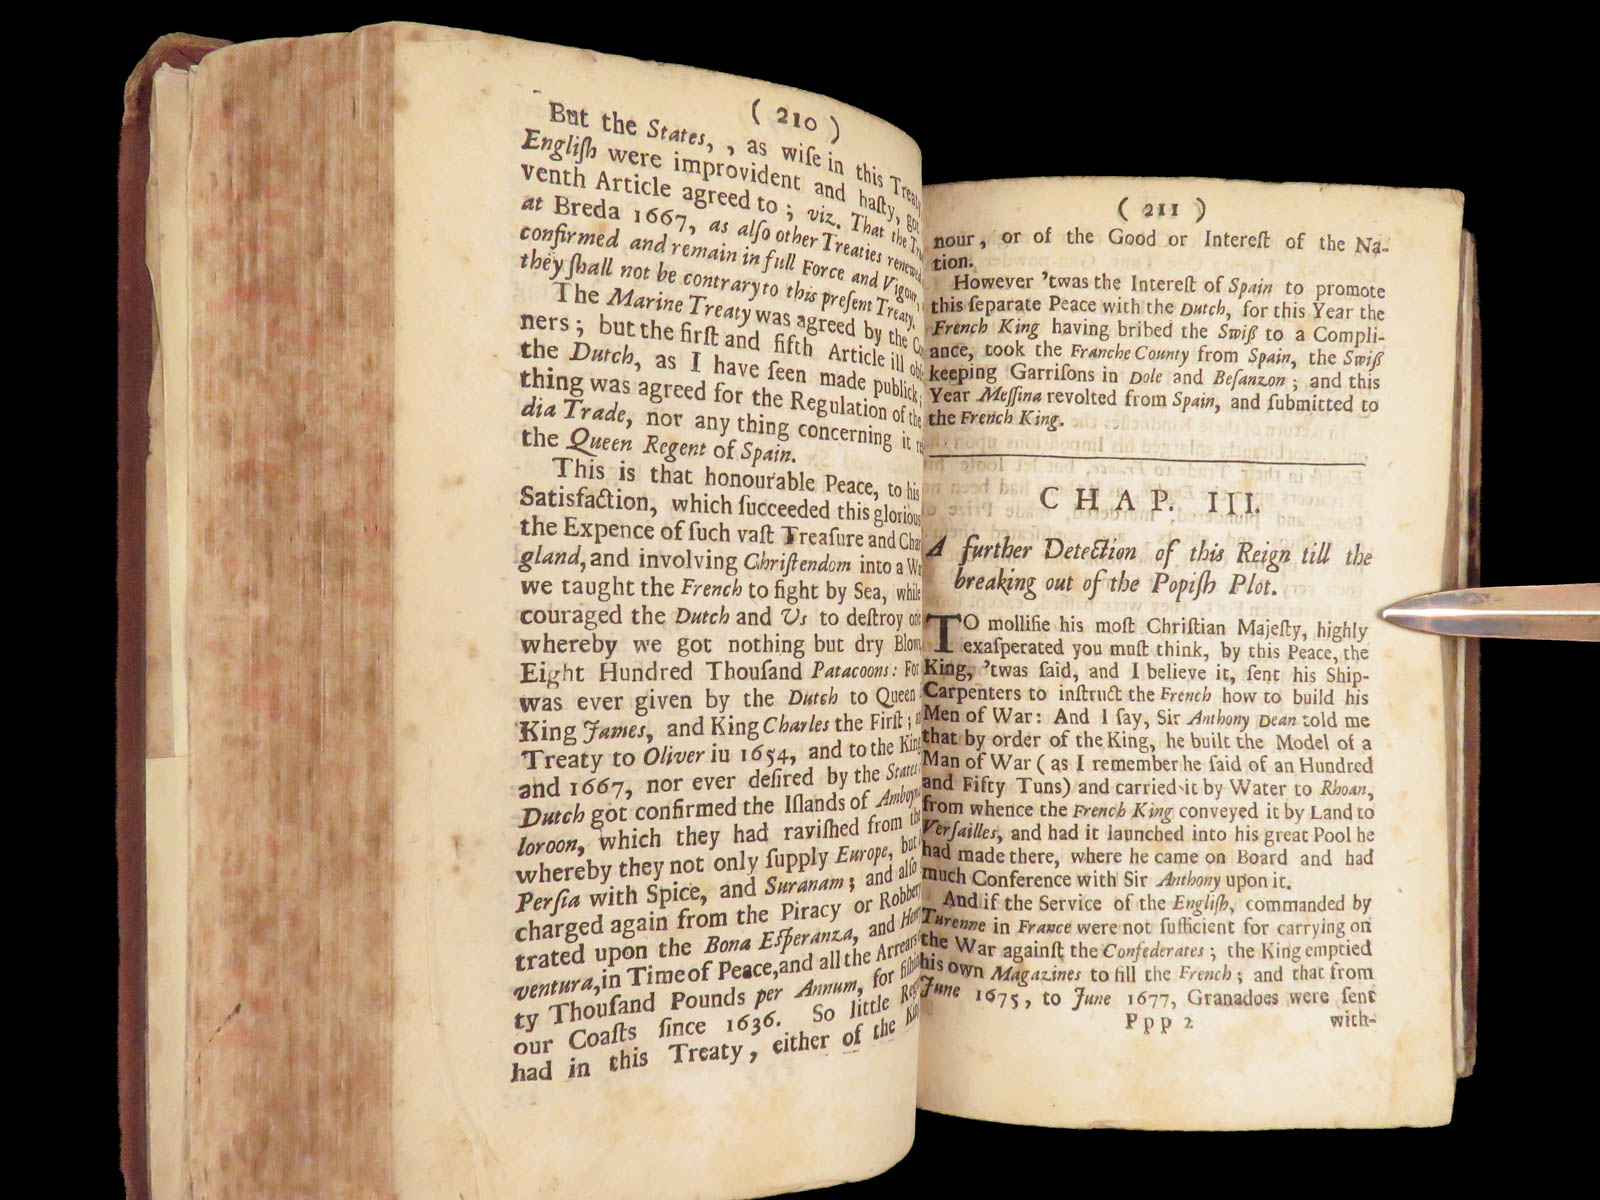 ( 210 )
But the States, , as wiſe in this
Engliſh were improvident and haſty,
venth Article agreed to ; viz. That the
at Breda 1667, as alſo other Treaties renewed
confirmed and remain in full Force and Vigour,
they ſhall not be contrary to this preſent Treaty.
The Marine Treaty was agreed by the
ners ; but the firſt and fifth Article ill
the Dutch, as I have ſeen made publick;
thing was agreed for the Regulation of the
dia Trade, nor any thing concerning it
the Queen Regent of Spain.
This is that honourable Peace, to his
Satisfaction, which ſucceeded this glorious
the Expence of ſuch vaſt Treaſure and
gland, and involving Chriſtendom into a
we taught the French to fight by Sea, while
couraged the Dutch and Us to deſtroy
whereby we got nothing but dry
Eight Hundred Thouſand Patacoons: For
was ever given by the Dutch to Queen
King James, and King Charles the Firſt ;
Treaty to Oliver iu 1654, and to the King
and 1667, nor ever deſired by the States:
Dutch got confirmed the Iſlands of
loroon, which they had raviſhed from the
whereby they not only ſupply Europe, but
Perſia with Spice, and Suranam ; and alſo
charged again from the Piracy or
trated upon the Bona Eſperanza, and
ventura, in Time of Peace, and all the Arrears
ty Thouſand Pounds per Annum, for
our Coaſts ſince 1636. So little
had in this Treaty, either of the
( 211 )
nour, or of the Good or Intereſt of the Na-
tion.
However 'twas the Intereſt of Spain to promote
this ſeparate Peace with the Dutch, for this Year the
French King having bribed the Swiß to a Compli-
ance, took the Franche County from Spain, the Swiß
keeping Garriſons in Dole and Beſanzon ; and this
Year Meſſina revolted from Spain, and ſubmitted to
the French King.
CHAP. III.
A further Detection of this Reign till the
breaking out of the Popiſh Plot.
TO mollifie his moſt Chriſtian Majeſty, highly
exaſperated you muſt think, by this Peace, the
King, 'twas ſaid, and I believe it, ſent his Ship-
Carpenters to inſtruct the French how to build his
Men of War: And I ſay, Sir Anthony Dean told me
that by order of the King, he built the Model of a
Man of War ( as I remember he ſaid of an Hundred
and Fifty Tuns) and carried it by Water to Rhoan,
from whence the French King conveyed it by Land to
Verſailles, and had it launched into his great Pool he
had made there, where he came on Board and had
much Conference with Sir Anthony upon it.
And if the Service of the Engliſh, commanded by
Turenne in France were not ſufficient for carrying on
the War againſt the Confederates ; the King emptied
his own Magazines to fill the French ; and that from
June 1675, to June 1677, Granadoes were ſent
Ppp 2
with-